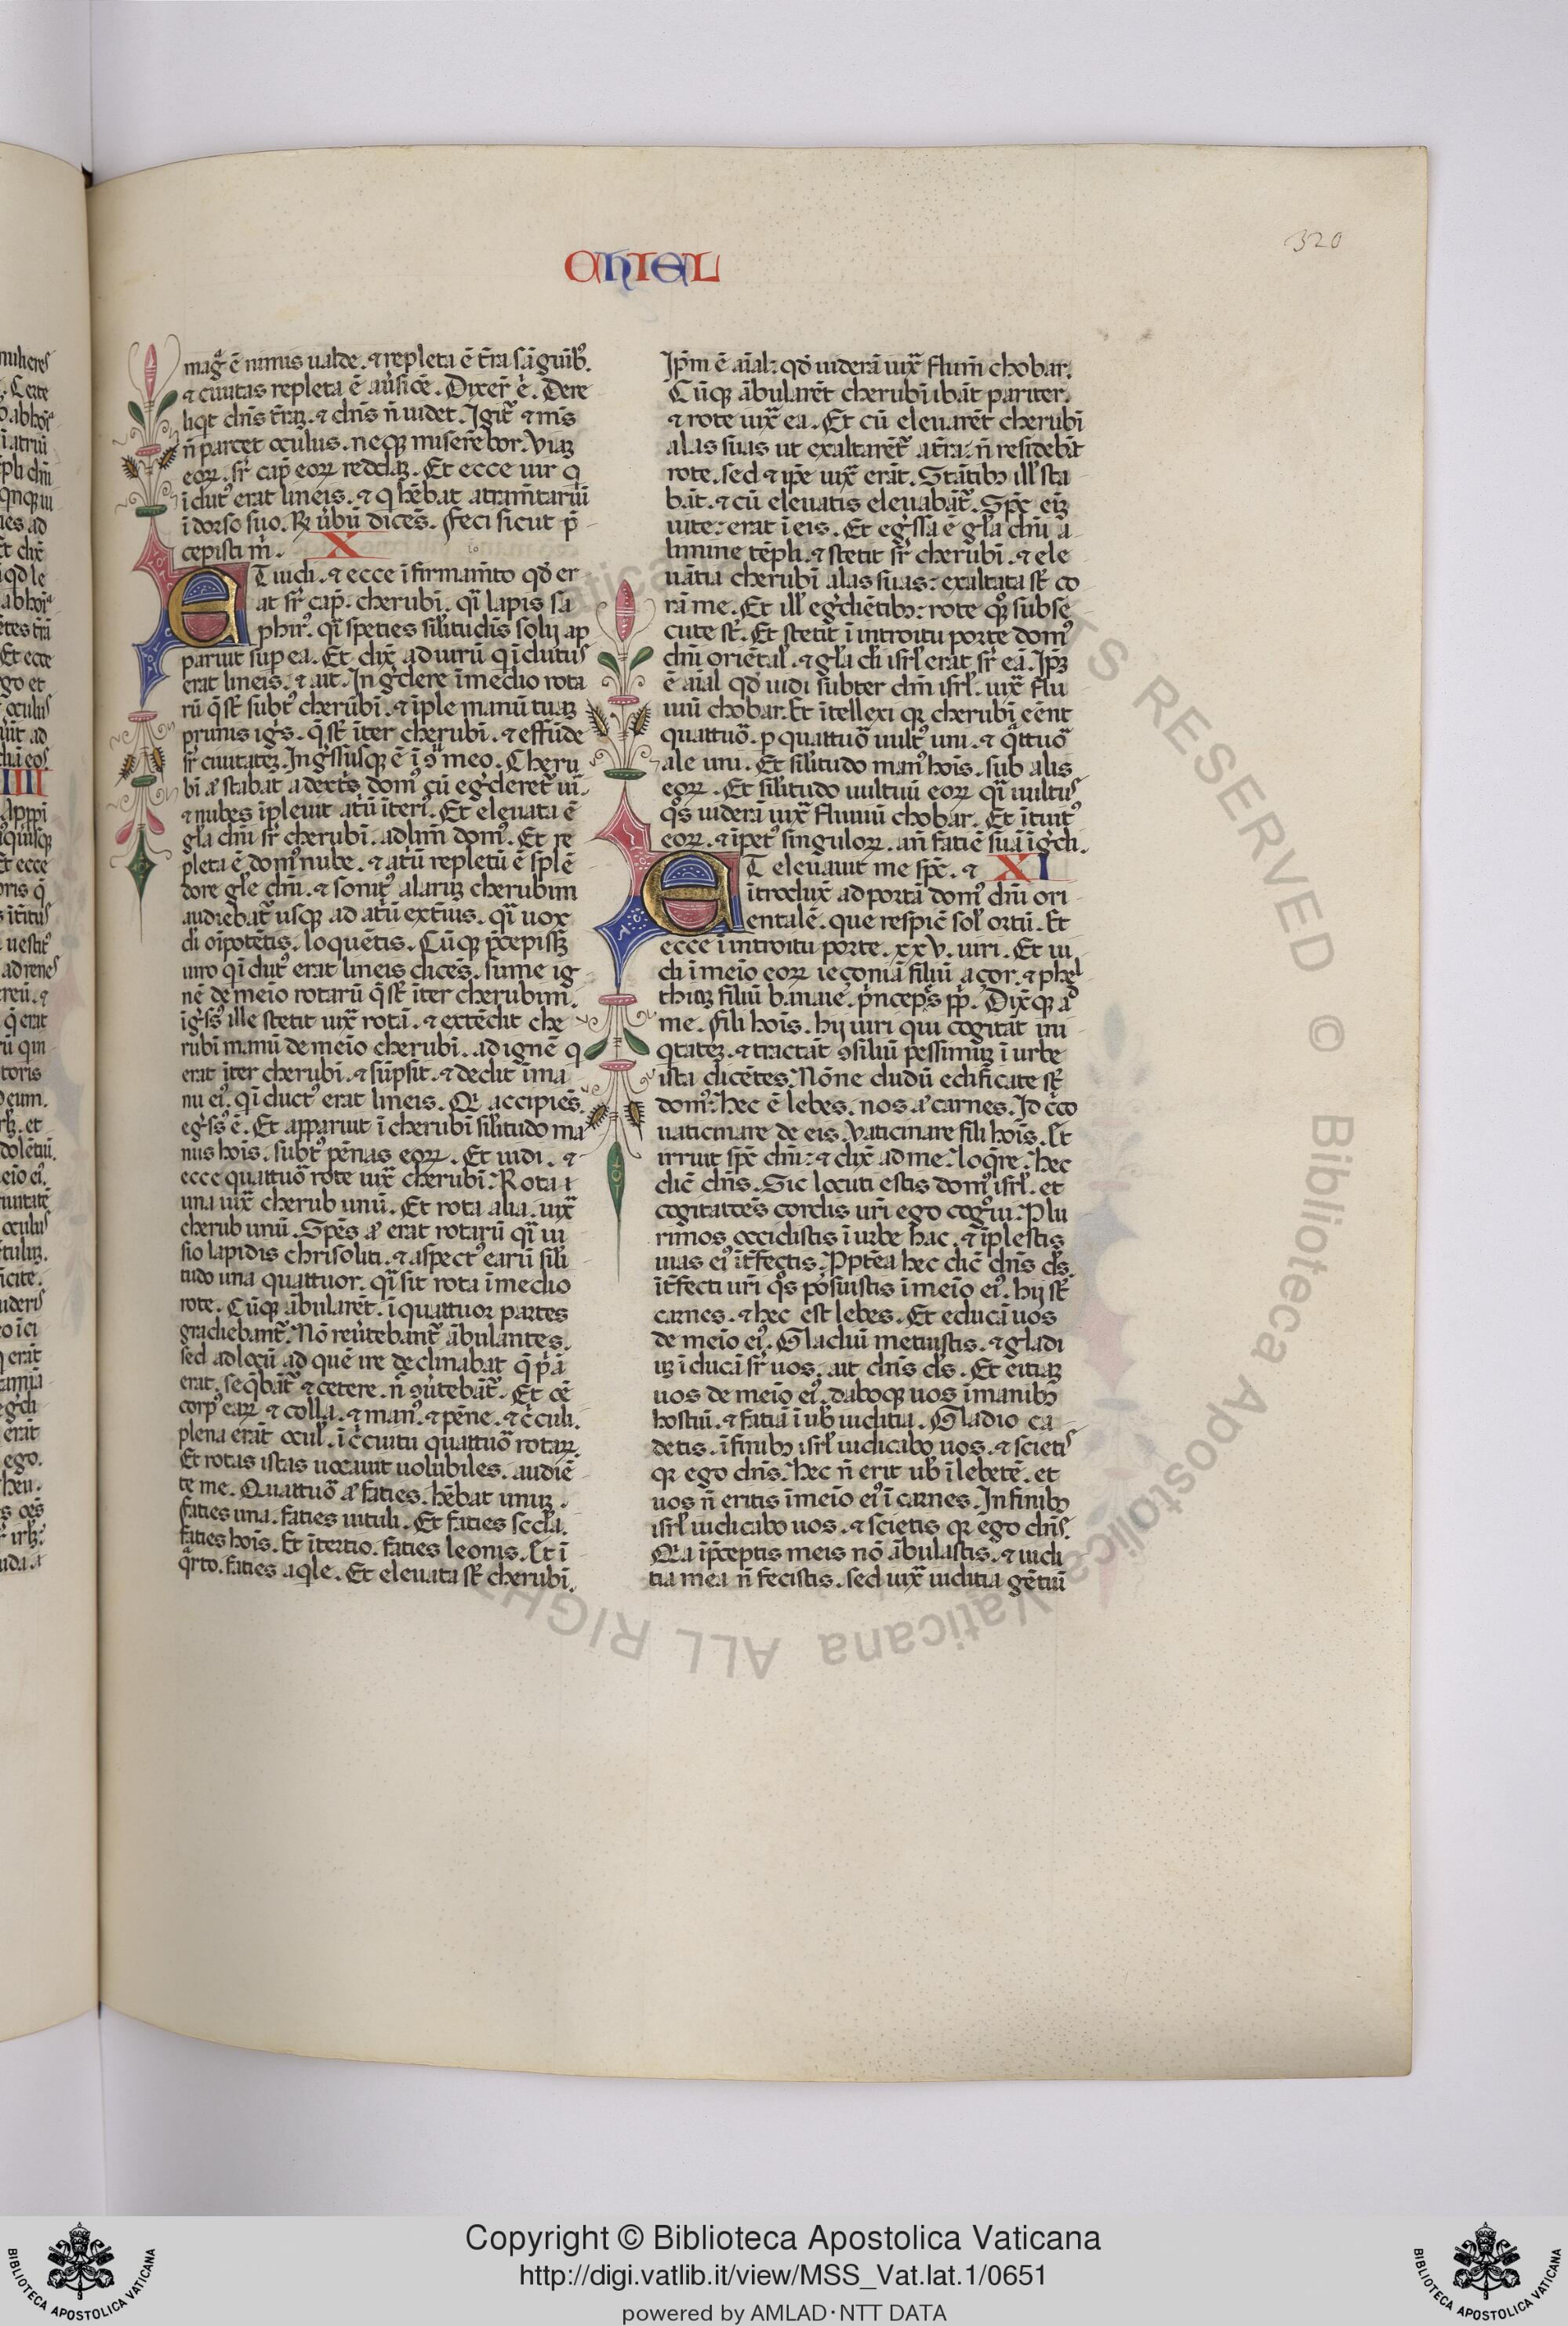 320
CHIEL
magᷓ ē nimis ualde. ⁊ repleta ē t̄ra sāguib⁹.
⁊ ciuitas repleta ē auˀsiōē. Dixer̄ .n̄. Dere
liqt dn̄s t̄raꝫ. ⁊ dn̄s n̄ uidet. Igit̄ ⁊ m̄s
n̄ parcet oculus. neqꝫ miserebor. Viaꝫ
eoꝝ. sr̄ cap̄ eoꝝ reddaꝫ. Et ecce uir q
ī dut⁹ erat lineis. ⁊ q hēbat atram̄tariū
ī dorso suo. R̄ ubū dicēs. Feci sicut p̄
cepisti m̄. X
ET uidi. ⁊ ecce ī firmam̄to qd̄ er
at sr̄ cap̄. cherubī. qī lapis sa
phir⁹. qī speties silitudīs solij ap
paruit sup ea. Et dix̄ ad uirū q ī dutus
erat lineis. ⁊ ait. In gˀdere ī medio rota
rū q̄ st̄ subt⁹ cherubī. ⁊ īple manū tuaꝫ
prunis igīs. q̄ st̄ īter cherubī. ⁊ effūde
sr̄ ciuitateꝫ. Ingˀssusqꝫ ē ī ꝯspectu meo. Cheru
bī aͭ stabāt a dextˀs dom⁹ cū egˀderet̄ uī.
⁊ nubes īpleuit at̄ū īteri⁹. Et eleuata ē
gl̄a dn̄i sr̄ cherubī. ad lim̄ dom⁹. Et re
pleta ē dom⁹ nube. ⁊ at̄ū repletū ē splē
dore gl̄e dn̄i. ⁊ sonit⁹ alaruꝫ cherubim
audiebat̄ usqꝫ ad at̄ū ext̄ius. qī uox
di oīpotētis. loquētis. Cūqꝫ p̄cepisꝫ
uiro q ī dut⁹ erat lineis dicēs. sume ig
nē de meīo rotarū q̄ st̄ īter cherubim.
īgˀs⁹ ille stetit iux̄ rotā. ⁊ extēdit che
rubī manū de meīo cherubī. ad ignē q
erat īter cherubī. ⁊ sūpsit. ⁊ dedit īma
nu ei⁹. q ī duct⁹ erat lineis. Q̄ accipiēs.
egˀs⁹ ē. Et apparuit ī cherubī silitudo ma
nus hoīs. subt⁹ pēnas eoꝝ. Et uidi. ⁊
ecce quattuō rote iux̄ cherubī. Rota ı
una iux̄ cherub unū. Et rota alia. iux̄
cherub unū. Spēs aͭ erat rotarū qī ui
sio lapidis chrisoliti. ⁊ aspect⁹ earū sili
tudo una quattuor. qī sit rota ī medio
rote. Cūqꝫ ābularēt. ī quattuor partes
gradiebant̄. Nō reūtebant̄ ābulantes.
sed ad locū ad quē ire declinabat q̄ p̄ā
erat. seq̄bāt̄ ⁊ cetere. n̄ ꝯūtebāt̄. Et oē
corp⁹ eaꝝ ⁊ colla. ⁊ man⁹. ⁊ pēne. ⁊ cˀculi.
plena erāt ocul̄. ī cˀcuitu quattuō rotaꝝ.
Et rotas istas uocauit uolubiles. audiē
te me. Quattuō aͭ faties. hēbat unuꝫ.
faties una. faties uituli. Et faties secd̄a.
faties hoīs. Et ī tertio. faties leonis. Et ī
q̄rto. faties aqͥle. Et eleuata st̄ cherubī.
Ip̄m ē aīal: qd̄ uiderā iux̄ flum̄ chobar.
Cūqꝫ ābularēt cherubī ibāt pariter.
⁊ rote iux̄ ea. Et cū eleuarēt cherubī
alas suas ut exaltarēt̄ a t̄ra: n̄ residebāt
rote. sed ⁊ ip̄e iux̄ erāt. Stātibꝫ ill̄ sta
bāt. ⁊ cū eleuatis eleuabāt̄. Sp̄c eīꝫ
uite: erat ī eis. Et egˀssa ē gl̄a dn̄i a
limine tēpli. ⁊ stetit sr̄ cherubī. ⁊ ele
uātia cherubī alas suas: exaltata st̄ co
rā me. Et ill̄ egˀdiētibꝫ: rote qꝫ subse
cute st̄. Et stetit ī introitu porte dom⁹
dn̄i oriētal̄. ⁊ gl̄a di isrl̄ erat sr̄ eā. Ip̄ꝫ
ē aīal qd̄ uidi subter dm̄ isrl̄. iux̄ flu
uiū chobar. Et ītellexi qꝛ cherubī eēnt
quattuō. p quattuō uult⁹ uni. ⁊ q̄ttuō
ale uni. Et silitudo man⁹ hoīs. sub alis
eoꝝ. Et silitudo uultuū eoꝝ qī uultus
qͦs uiderā iux̄ fluuiū chobar. Et ītuit⁹
eoꝝ. ⁊ īpet⁹ singuloꝝ. an̄ fatiē suā īgˀdi.
ET eleuauit me sp̄c. ⁊ XI
ītrodux̄ ad portā dom⁹ dn̄i ori
entalē. que respic̄ sol̄ ortū. Et
ecce ī introitu porte. xxv. uiri. Et ui
di ī meīo eoꝝ ieçoniā filiū açor. ⁊ phel
thiaꝫ filiū banaie. p̄ncepˀs pp̄. Dix̄qꝫ ad
me. Fili hoīs. hij uiri qui cogitāt ini
qͥtateꝫ. ⁊ tractāt ꝯsiliū pessimuꝫ ī urbe
ista dicētes. Nōne dudū edificate st̄
dom⁹: hec ē lebes. nos aͭ carnes. Idcˀco
uaticinare de eis. vaticinare fili hoīs. Et
irruit sp̄c dn̄i: ⁊ dix̄ ad me. loq̄re. hec
dic̄ dn̄s. Sic locuti estis dom⁹ isrl̄. et
cogitatōes cordis ur̄i ego cogͦui. Plu
rimos occidistis ī urbe hac. ⁊ īplestis
uias ei⁹ īt̄fectis. Pptēa hec dic̄ dn̄s ds̄.
īt̄fecti ur̄i qͦs posuistis ī meīo ei⁹. hij st̄
carnes. ⁊ hec est lebes. Et educā uos
de meīo ei⁹. Gladiū metuistis. ⁊ gladi
uꝫ ī ducā sr̄ uos. ait dn̄s ds̄. Et eitiaꝫ
uos de meīo ei⁹. daboqꝫ uos ī manibꝫ
hostiū. ⁊ fatiā ī ub̄ iuditia. Gladio ca
detis. ī finibꝫ isrl̄ iudicabo uos. ⁊ scietis
qꝛ ego dn̄s. hec n̄ erit ub̄ ī lebetē. et
uos n̄ eritis ī meīo ei⁹ ī carnes. In finibꝫ
isrl̄ iudicabo uos. ⁊ scietis qꝛ ego dn̄s.
Q̄a ī p̄ceptis meis nō ābulastis. ⁊ iudi
tia mea n̄ fecistis. sed iux̄ iuditia gētiū
Biblioteca Apostolica Vaticana ALL RIGHTS RESERVED ©
Copyright © Biblioteca Apostolica Vaticana
http://digi.vatlib.it/view/MSS_Vat.lat.1/0651
powered by AMLAD·NTT DATA
BIBLIOTECA APOSTOLICA VATICANA
BIBLIOTECA APOSTOLICA VATICANA